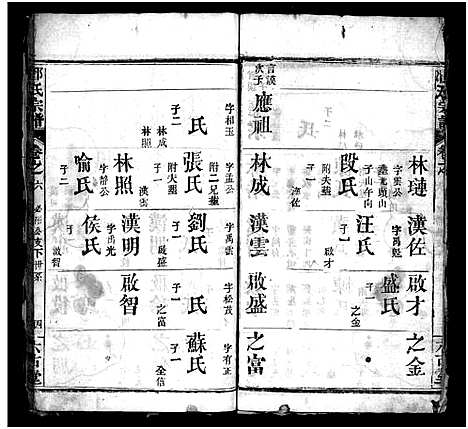 林璉
字雲公
漢佐
字禹魁
啟才
之金
葬尤頭山
子山午向
段氏
附夫塟
子一
漢佐
汪氏
子一
啟才
盛氏
子一
之金
言談
次子
應祖
林成
漢雲
啟盛
之富
字相玉
字孟公
字禹雲
字松茂
字有正
氏
子二
林成
林照
張氏
附二兄塟
附夫塟
子一
漢雲
劉氏
子一
啟盛
氏
子一
之富
蘇氏
子一
全信
林照
字靜公
漢明
字出光
啟智
喻氏
子二
侯氏
子一
啟智
氏宗譜
卷之六
四
六言堂